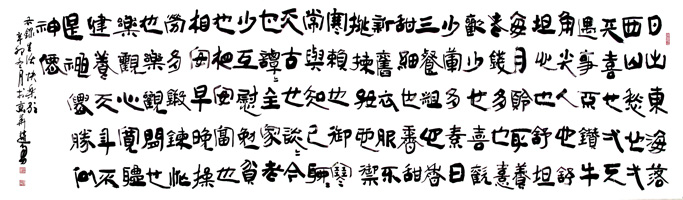 日出東海落
西山愁也一
天喜也一天
遇事不鑽牛
角尖人也舒
坦心也舒坦
每月領取養
老錢多也喜
歡少也喜歡
少葷多素日
三餐粗也香
甜細也香甜
新舊衣服不
挑揀好也禦
寒賴也禦寒
常與知己聊
天古也談今
也談全家老
少互慰勉貧
也相安富也
相安早晚操
勞多鍛鍊忙
也樂觀閑也
樂觀心寬體
健養天年不
是神僊勝似
神僊
生活快樂歌
辛卯冬月於京華